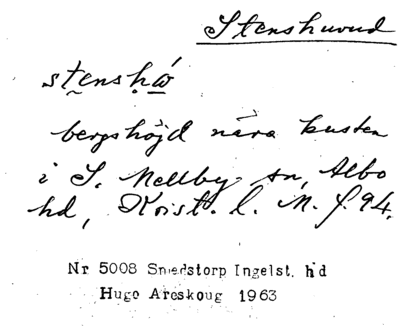 Stenshuvud
stensha̲
bergshöjd nära kusten
i S. Mellby sn, Albo
hd, Krist. l. M. f. 94.
Nr 5008 Smedstorp Ingelst. hd
Hugo Areskoug 1963